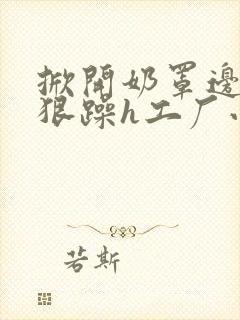 掀開奶罩邊
狠躁h工厂
若斯